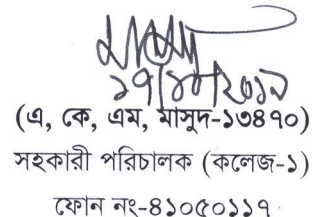 ১৭/১০/২০১৯
(এ, কে, এম, মাসুদ-১৩৪৭০)
সহকারী পরিচালক (কলেজ-১)
ফোন নং-৪১০৫০১১৭